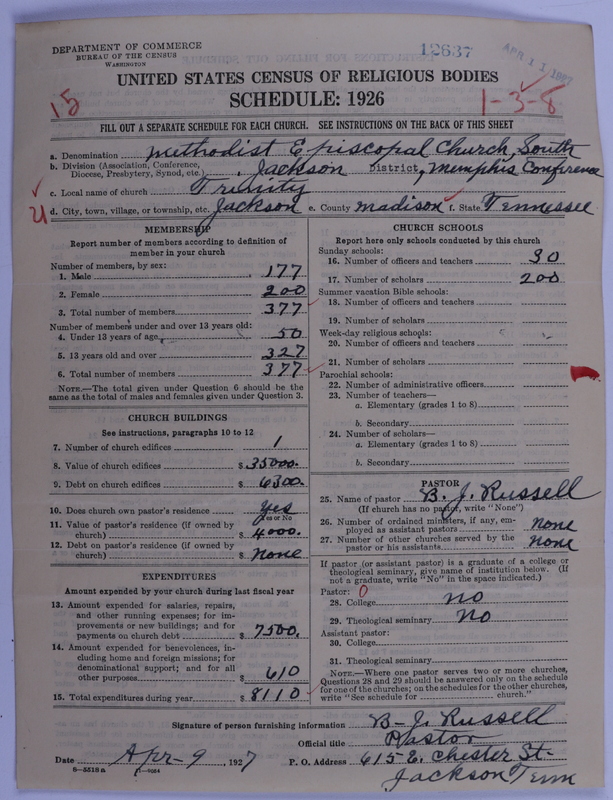 DEPARTMENT OF COMMERCE
BUREAU OF THE CENSUS
WASHINGTON
12637
APR 11 1927
UNITED STATES CENSUS OF RELIGIOUS BODIES
SCHEDULE: 1926
15
1-3-8
FILL OUT A SEPARATE SCHEDULE FOR EACH CHURCH. SEE INSTRUCTIONS ON THE BACK OF THIS SHEET
a. Denomination Methodist Episcopal Church, South
b. Division (Association, Conference, Diocese, Presbytery, Synod, etc.) Jackson District, Memphis Conference
c. Local name of church Trinity
d. City, town, village, or township, etc. Jackson e. County Madison f. State Tennessee
MEMBERSHIP
Report number of members according to definition of
member in your church
Number of members, by sex:
1. Male 177
2. Female 200
3. Total number of members 377
Number of members under and over 13 years old:
4. Under 13 years of age 50
5. 13 years old and over 327
6. Total number of members 377
NOTE.—The total given under Question 6 should be the
same as the total of males and females given under Question 3.
CHURCH BUILDINGS
See instructions, paragraphs 10 to 12
7. Number of church edifices 1
8. Value of church edifices $ 35000.
9. Debt on church edifices $ 6300.
10. Does church own pastor's residence yes
Yes or No
11. Value of pastor's residence (if owned by
church) $ 4000.
12. Debt on pastor's residence (if owned by
church) $ none
EXPENDITURES
Amount expended by your church during last fiscal year
13. Amount expended for salaries, repairs,
and other running expenses; for im-
provements or new buildings; and for
payments on church debt $ 7500.
14. Amount expended for benevolences, in-
cluding home and foreign missions; for
denominational support; and for all
other purposes $ 610
15. Total expenditures during year $ 8110
CHURCH SCHOOLS
Report here only schools conducted by this church
Sunday schools:
16. Number of officers and teachers 30
17. Number of scholars 200
Summer vacation Bible schools:
18. Number of officers and teachers
19. Number of scholars
Week-day religious schools:
20. Number of officers and teachers
21. Number of scholars
Parochial schools:
22. Number of administrative officers
23. Number of teachers—
a. Elementary (grades 1 to 8)
b. Secondary
24. Number of scholars—
a. Elementary (grades 1 to 8)
b. Secondary
PASTOR
25. Name of pastor B. J. Russell
(If church has no pastor, write "None")
26. Number of ordained ministers, if any, em-
ployed as assistant pastors none
27. Number of other churches served by the
pastor or his assistants none
If pastor (or assistant pastor) is a graduate of a college or
theological seminary, give name of institution below. (If
not a graduate, write "No" in the space indicated.)
Pastor: 0
28. College no
29. Theological seminary No
Assistant pastor:
30. College
31. Theological seminary
NOTE.—Where one pastor serves two or more churches,
Questions 28 and 29 should be answered only on the schedule
for one of the churches; on the schedules for the other churches,
write "See schedule for church."
Signature of person furnishing information B. J. Russell
Official title Pastor
Date Apr-9, 1927 P. O. Address 615 E. Chester St-
Jackson Tenn
8—5518a